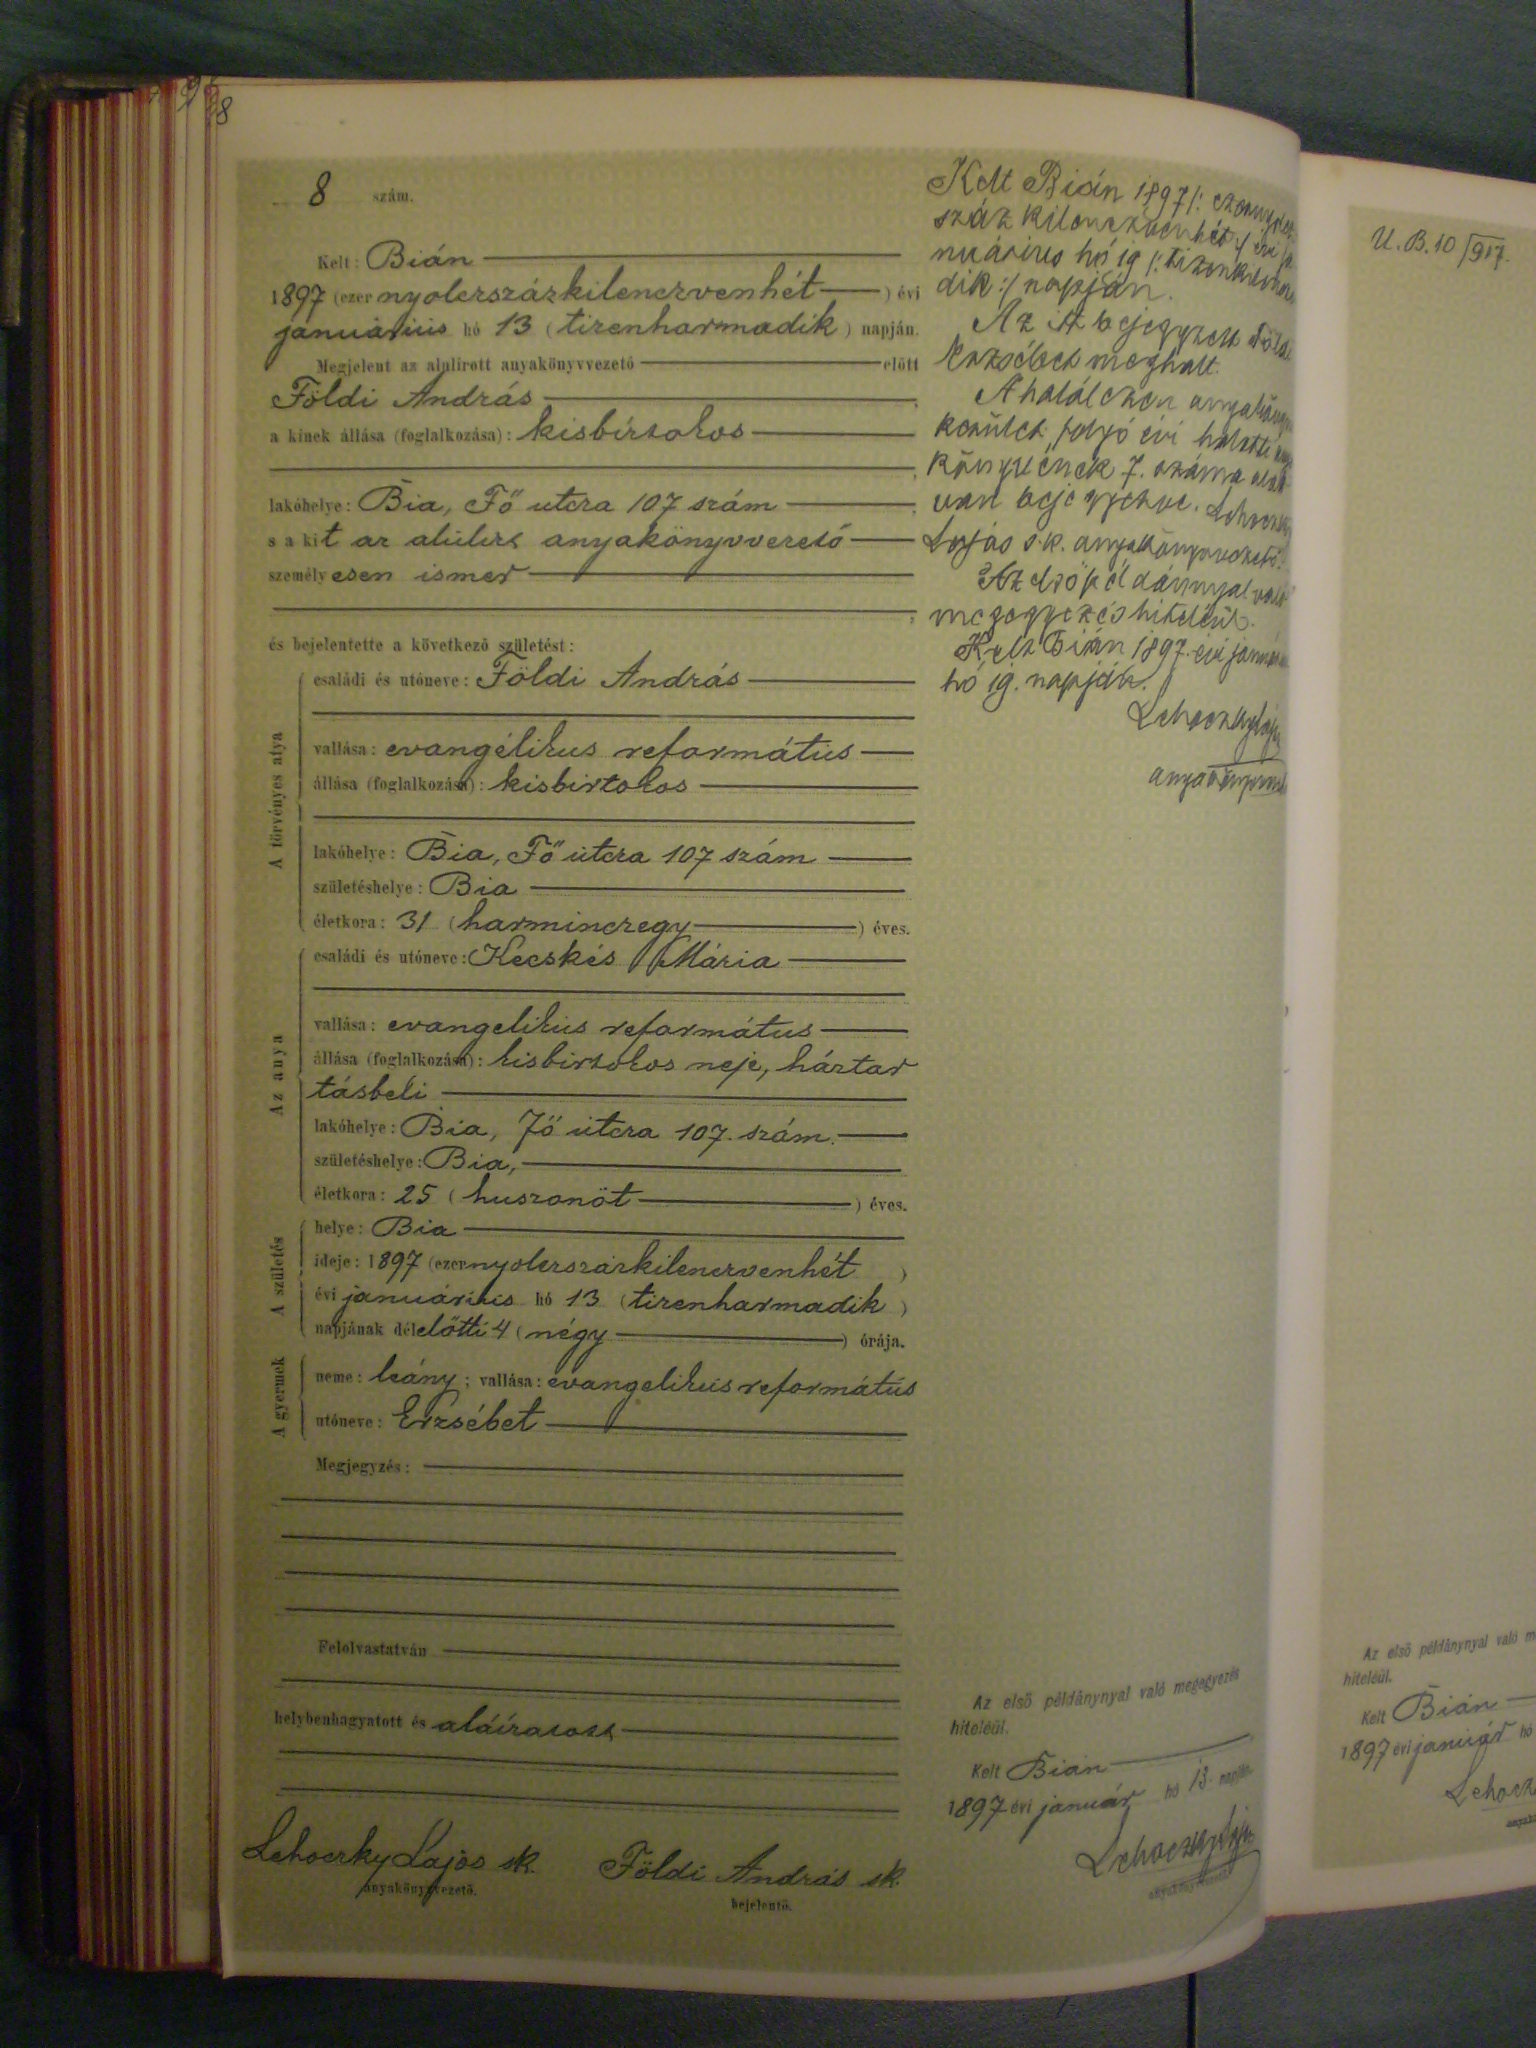 8
8 szám.
Kelt: Bián
1897 (ezer nyolczszázkilenczvenhét) évi
januáriús hó 13 (tizenharmadik) napján.
Megjelent az alulirott anyakönyvvezető előtt
Földi András
a kinek állása (foglalkozása): kisbirtokos
lakóhelye: Bia, Fő utcza 107 szám
s a kit az alulirt anyakönyvvezető
személyesen ismer
és bejelentette a következő születést:
A törvényes atya
családi és utóneve: Földi András
vallása: evangélikus református
állása (foglalkozása): kisbirtokos
lakóhelye: Bia, Fő utcza 107 szám
születéshelye: Bia
életkora: 31 (harminczegy) éves.
Az anya
családi és utóneve: Kecskés Mária
vallása: evangelikus református
állása (foglalkozása): kisbirtokos neje, háztar
tásbeli
lakóhelye: Bia, Fő utcza 107. szám.
születéshelye: Bia,
életkora: 25 (huszonöt) éves.
A születés
helye: Bia
ideje: 1897 (ezernyolczszázkilenczvenhét)
évi januáriús hó 13 (tizenharmadik)
napjának délelőtti 4 (négy) órája.
A gyermek
neme: leány; vallása: evangelikus református
utóneve: Erzsébet
Megjegyzés:
Felolvastatván
helybenhagyatott és aláíratott
Lehoczky Lajos sk. Földi András sk.
anyakönyvvezető. bejelentő.
Kelt Bián 1897/: ezernyolcz
száz kilenczvenhét :/ évi ja
nuárius hó 19 /: tizenkilencze
dik :/ napján.
Az itt bejegyzett Földi
Erzsébet meghalt.
A haláleset anyakönyvi
kerület folyó évi halotti anya
könyvének 7. száma alatt
van bejegyezve. Lehoczky
Lajos s.k. anyakönyvvezető.
Az első példánnyal való
megegyezés hiteléül.
Kelt Bián 1897. évi január
hó 19. napján.
Lehoczky Lajos
anyakönyvvezető
Az első példánynyal való megegyezés
hiteléül.
Kelt Bián
1897 évi január hó 13. napján.
Lehoczky Lajos
anyakönyvvezető
U. B. 10 917.
Az első példánynyal való m
hiteléül.
Kelt Bián
1897 évi január hó
Lehocz